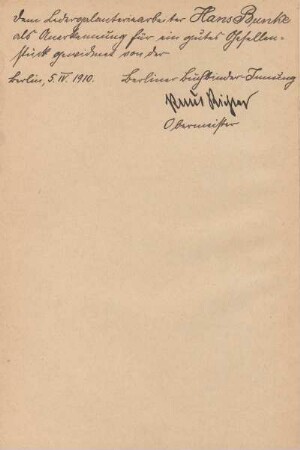 Dem Ledergalanteriearbeiter Hans Bunke
als Anerkennung für ein gutes Gesellen-
stück gewidmet von der
Berlin, 5. IV. 1910. Berliner Buchbinder-Innung
Obermeister